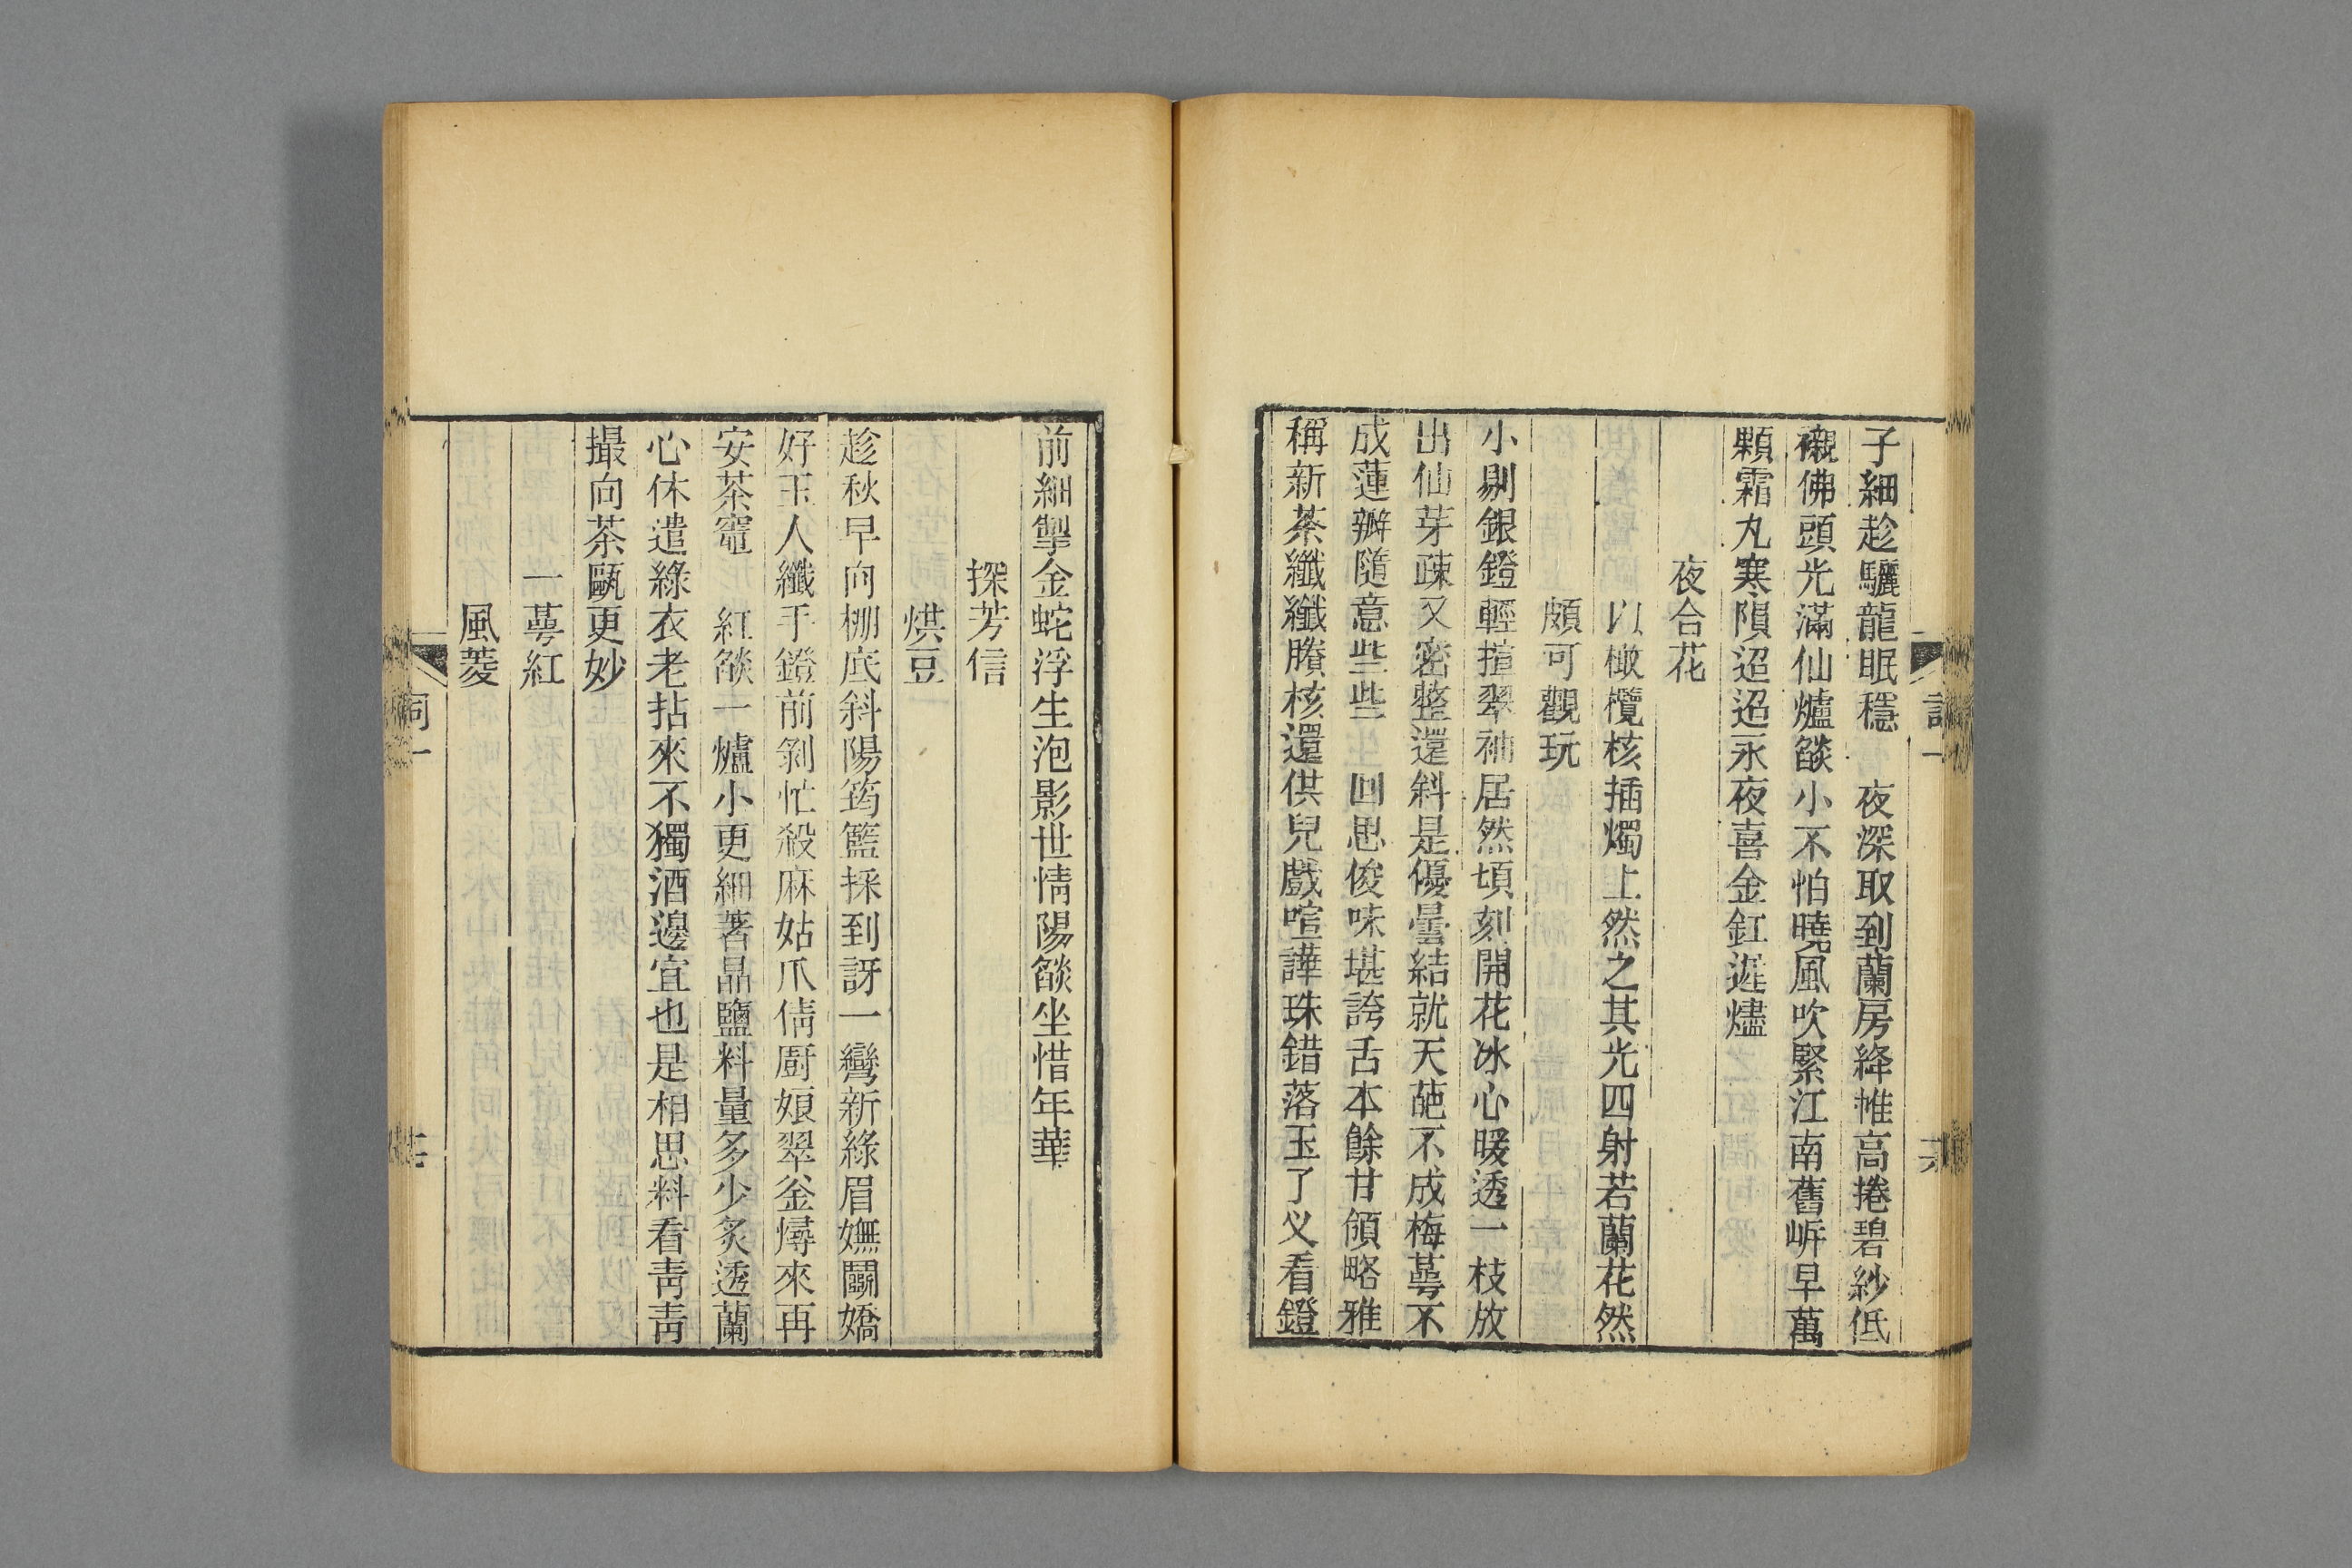 子細趁驪龍眠穩　夜深取到蘭房絳帷高捲碧紗低
襯佛頭光滿仙爐燄小不怕曉風吹緊江南舊㟁早萬
顆霜丸寒隕迢迢永夜喜金釭遲燼
夜合花
以橄欖核插燭上然之其光四射若蘭花然
頗可觀玩
小剔銀鐙輕揎翠袖居然頃刻開花冰心暖透一枝放
出仙芽疎又密整還斜是優曇結就天葩不成梅萼不
成蓮瓣隨意些些　回思俊味堪誇舌本餘甘頒略雅
稱新茶纖纖賸核還供兒戲喧譁珠錯落玉了义看鐙
前細掣金蛇浮生泡影世情陽燄坐惜年華
探芳信
烘豆
趁秋早向棚底斜陽筠籃採到訝一彎新綠眉嫵鬬嬌
好玉人纖手鐙前剝忙殺麻姑爪倩廚娘翠釜燖來再
安茶竈　紅燄一爐小更細著晶鹽料量多少炙透蘭
心休遣綠衣老拈來不獨酒邊宜也是相思料看靑靑
撮向茶甌更妙
一萼紅
風菱
詞一